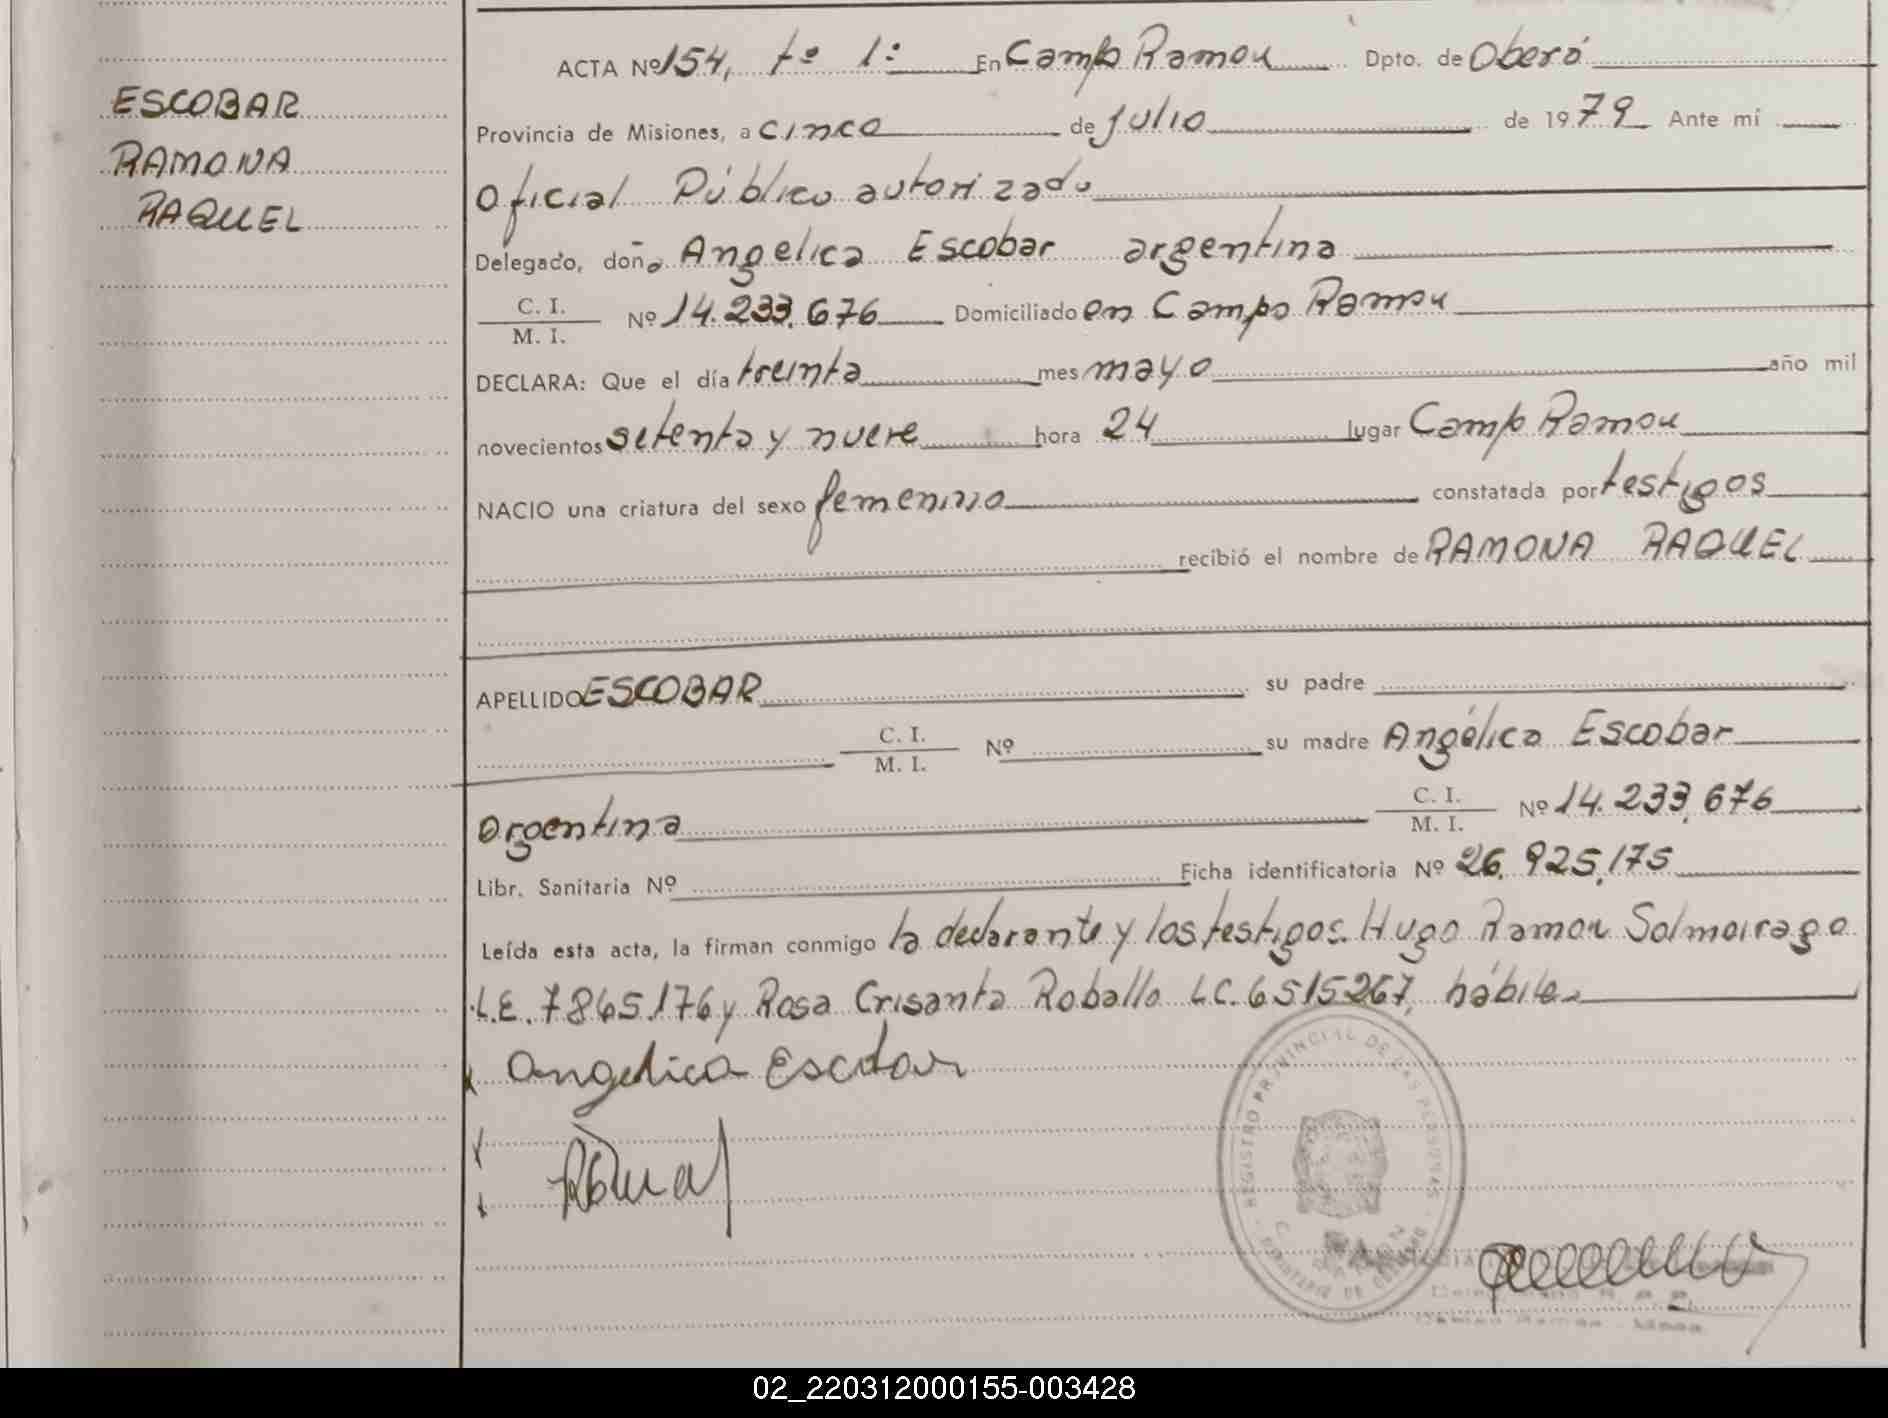 ESCOBAR
RAMONA
RAQUEL
ACTA Nº 154, tº 1: En Campo Ramon Dpto. de Oberá
Provincia de Misiones, a cinco de julio de 1979 Ante mí
Oficial Público autorizado
Delegado, doña Angelica Escobar argentina
C. I.
M. I. Nº 14.233.676 Domiciliado en Campo Ramon
DECLARA: Que el día treinta mes mayo año mil
novecientos setenta y nueve hora 24 lugar Campo Ramon
NACIO una criatura del sexo femenino constatada por testigos
recibió el nombre de RAMONA RAQUEL
APELLIDO ESCOBAR su padre
C. I.
M. I. Nº su madre Angélica Escobar
argentina C. I.
M. I. Nº 14.233.676
Libr. Sanitaria Nº Ficha identificatoria Nº 26.925.175
Leída esta acta, la firman conmigo la declarante y los testigos. Hugo Ramon Salmoirago
L.E. 7865.176 y Rosa Crisanta Roballo L.C. 6515267, hábiles
Angelica Escobar
REGISTRO PROVINCIAL DE LAS PERSONAS
02_220312000155-003428